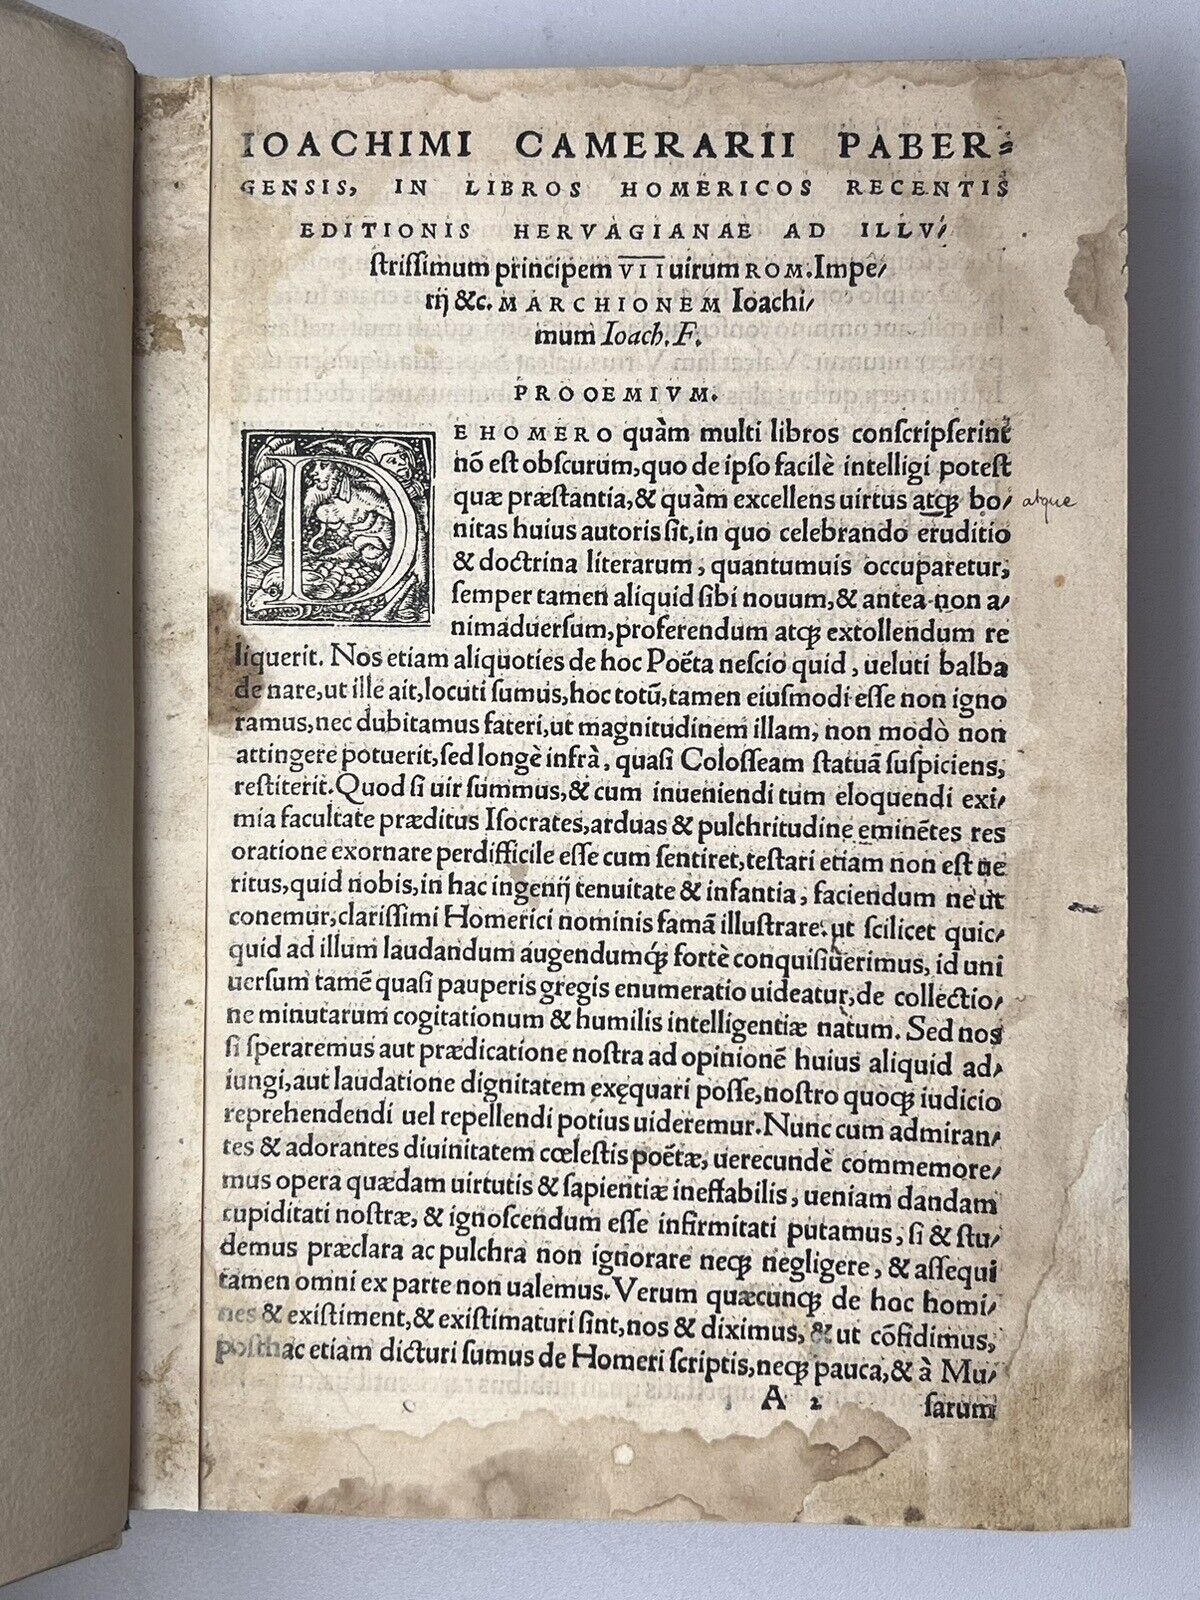 IOACHIMI CAMERARII PABER-
GENSIS, IN LIBROS HOMERICOS RECENTIS
EDITIONIS HERVAGIANAE AD ILLV-
ſtriſſimum principem VII uirum ROM. Impe-
rij &c. MARCHIONEM Ioachi-
mum Ioach. F.
PROOEMIVM.
DE HOMERO quàm multi libros conſcripſerint
nō eſt obſcurum, quo de ipſo facilè intelligi poteſt
quæ præſtantia, & quàm excellens uirtus atq́; bo-
atque
nitas huius autoris ſit, in quo celebrando eruditio
& doctrina literarum, quantumuis occuparetur,
ſemper tamen aliquid ſibi nouum, & antea non a-
nimaduerſum, proferendum atq́; extollendum re
liquerit. Nos etiam aliquoties de hoc Poëta neſcio quid, ueluti balba
de nare, ut ille ait, locuti ſumus, hoc totū, tamen eiuſmodi eſſe non igno
ramus, nec dubitamus fateri, ut magnitudinem illam, non modò non
attingere potuerit, ſed longè infrà, quaſi Coloſſeam ſtatuā ſuſpiciens,
reſtiterit. Quod ſi uir ſummus, & cum inueniendi tum eloquendi exi-
mia facultate præditus Iſocrates, arduas & pulchritudine eminētes res
oratione exornare perdifficile eſſe cum ſentiret, teſtari etiam non eſt ue
ritus, quid nobis, in hac ingenij tenuitate & infantia, faciendum ne ut
conemur, clariſſimi Homerici nominis famā illuſtrare: ut ſcilicet quic-
quid ad illum laudandum augendumq́; fortè conquiſiuerimus, id uni
uerſum tamē quaſi pauperis gregis enumeratio uideatur, de collectio-
ne minutarum cogitationum & humilis intelligentiæ natum. Sed nos
ſi ſperaremus aut prædicatione noſtra ad opinionē huius aliquid ad-
iungi, aut laudatione dignitatem exęquari poſſe, noſtro quoq́; iudicio
reprehendendi uel repellendi potius uideremur. Nunc cum admiran-
tes & adorantes diuinitatem cœleſtis poëtæ, uerecundè commemore-
mus opera quædam uirtutis & ſapientiæ ineffabilis, ueniam dandam
cupiditati noſtræ, & ignoſcendum eſſe infirmitati putamus, ſi & ſtu-
demus præclara ac pulchra non ignorare neq́; negligere, & aſſequi
tamen omni ex parte non ualemus. Verum quæcunq́; de hoc homi-
nes & exiſtiment, & exiſtimaturi ſint, nos & diximus, & ut cōfidimus,
poſthac etiam dicturi ſumus de Homeri ſcriptis, neq́; pauca, & à Mu-
A 2 ſarum